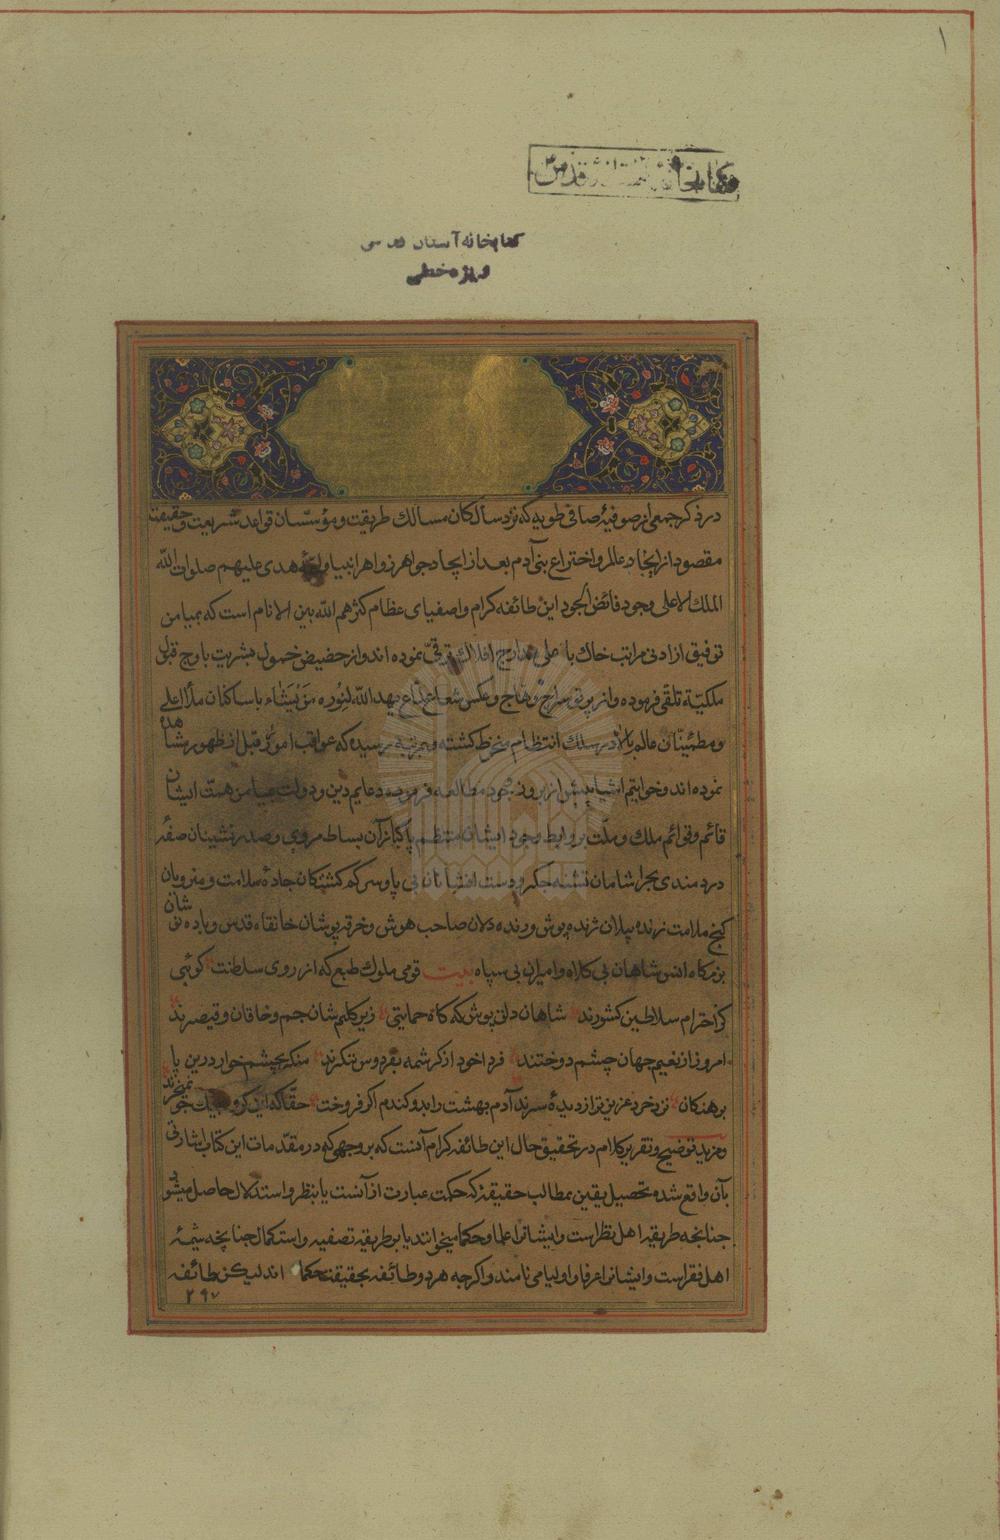 ۱
کتابخانه آستان قدس
کتابخانه آستان قدسی
ویژه خطی
در ذکر جمعی از صوفیهٔ صافی طویه که نزد سالکان مسالک طریقت و مؤسسان قواعد شریعت و حقیقت
مقصود از ایجاد عالم و اختراع بنی آدم بعد از ایجاد جواهر زواهر انبیا و ائمهٔ هدی علیهم صلوات الله
الملک الاعلی وجود فائض الجود این طائفه کرام و اصفیای عظام کثرهم الله بین الانام است که بمیامن
توفیق از ادنی مراتب خاک با علی مدارج افلاک ترقی نموده اند و از حضیض خمول بشریت باوج قبول
ملکیّة تلقی فرموده و از پرتو سراج وهّاج و عکس شعاع یهدالله لنوره من یشاء با ساکنان ملأ اعلی
و مطمئنّان عالم بالا در سلک انتظام منخرط کشته و بمرتبه رسیده که عواقب امور قبل از ظهور مشاهده
نموده اند و خواتیم اشیا پیش از بروز وجود مطالعه فرموده دعایم دین و دولت بمیامن همت ایشان
قائم و قوائم ملک و ملّت بروابط وجود ایشان منتظم پاکبازان بساط مروی و صدر نشینان صفّهٔ
دردمندی بحر آشامان تشنه جگر و دست افشانان بی پا و سر کم کشتکان جادهٔ سلامت و منزویان
کنج ملامت زنده پیلان ژنده پوش و رنده دلان صاحب هوش و خرقه پوشان خانقاه قدس و باده نوشان
بزمکاه انس شاهان بی کلاه و امیران بی سپاه بیت قومی ملوک طبع که از روی سلطنت کوئی
کز احترام سلاطین کشورند شاهان دلق پوش که کاه حمایتی زیر کلیم شان جم و خاقان و قیصرند
امروز از نعیم جهان چشم دوختند فردا خود از کرشمه بفردوس ننکرند منکر بچشم خوار درین پا
برهنکان نزد خرد عزیزتر از دیدهٔ سرند آدم بهشت را بدو کندم اگر فروخت حقا که این کروه بیک جو نمیخرند
و مزید توضیح و تقریر کلام در تحقیق حال این طائفه کرام آنست که بر وجهی که در مقدمات این کتاب اشارتی
بآن واقع شده تحصیل یقین بمطالب حقیقیّه که حکمت عبارت از آنست یا بنظر و استدلال حاصل میشود
چنانچه طریقه اهل نظر است و ایشانرا علما و حکما میخوانند یا بر طریقه تصفیه و استکمال چنانچه شیمهٔ
اهل فقر است و ایشانرا عرفا و اولیا می نامند و اگرچه هر دو طائفه بحقیقت حکما اند لیکن طائفه
۲۹۷